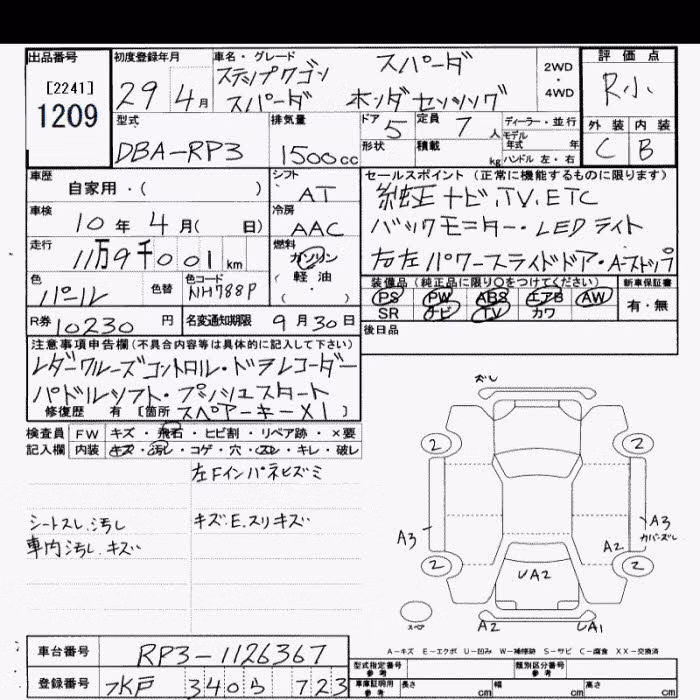 出品番号 初度登録年月 車名・グレード 評価点
[2241] 29 4月 ステップワゴン スパーダ 2WD ・ 4WD R小
1209 スパーダ ホンダセンシング
型式 排気量 ドア 5 定員 7 人 ディーラー・並行 外装 内装
DBA-RP3 1500cc 形状 積載 kg モデル年式 年 C B
ハンドル 左・右
車歴 シフト セールスポイント (正常に機能するものに限ります)
自家用・( ) AT 純正ナビ.TV.ETC
車検 冷房 バックモニター・LEDライト
10年 4月( 日) AAC 右左パワースライドドア・A-ストップ
走行 燃料
11万9千001km ガソリン
(軽油)
・
色 色替 色コード 装備品(純正品に限り○をつけてください) 新車保証書
パール NH788P PS PW ABS エアB AW 有・無
SR ナビ TV カワ
R券 10230 円 名変通知期限 9月30日 後日品
注意事項申告欄(不具合内容等は具体的に記入して下さい)
レダクルーズコントロル・ドラレコーダー
パドルシフト・プッシュスタート
修復歴 有 [箇所 スペアーキーX1 ]
検査員 FW キズ・飛石・ヒビ割・リペア跡・×要
記入欄 内装 キズ・汚レ・コゲ・穴・スレ・キレ・破レ
左Fインパネヒズミ
シートスレ.汚レ キズ.E.スリキズ
車内汚レ.キズ
ズレ
2 2
A3 A3
カバーズレ
A2
2 2
UA2
スペア A2 UA1
A-キズ E-エクボ U-凹み W-補修跡 S-サビ C-腐食 XX-交換済
車台番号 RP3-1126367 型式指定番号 参考 類別区分番号 参考
登録番号 水戸 340 ら 723 車庫証明用 参考 長さ cm 幅 cm 高さ cm